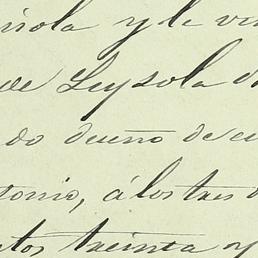 ñola y le ven
de Leysola d
do dueño de cu
tonio, á los tres d
ntos treinta y